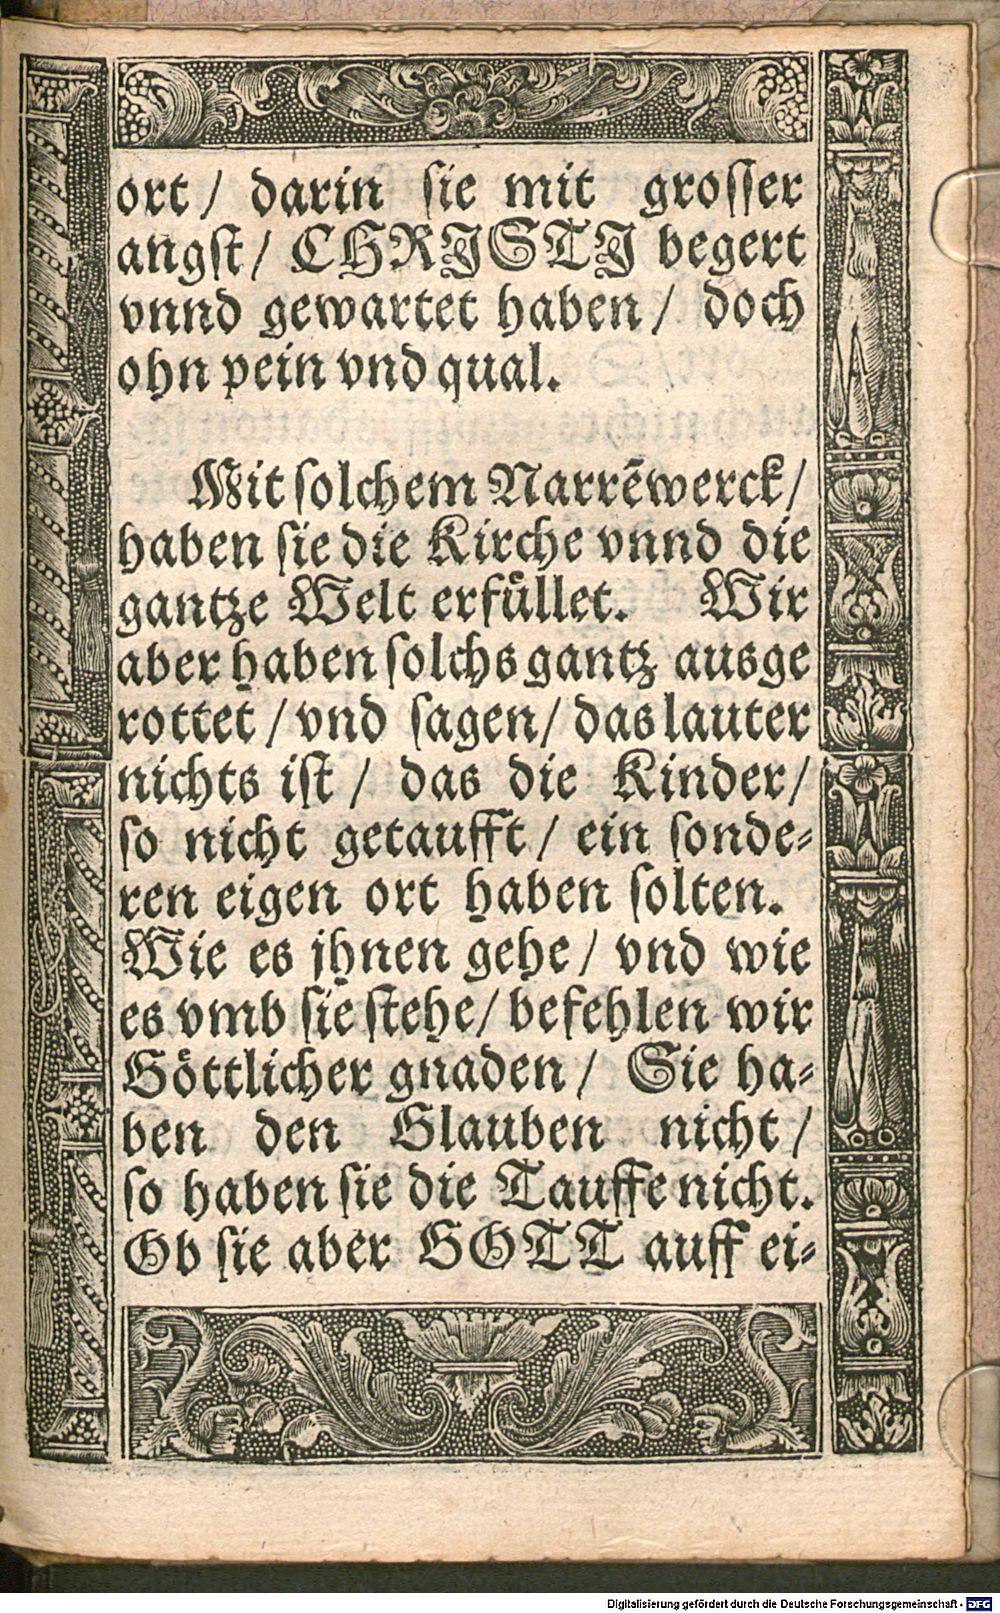 ort / darin sie mit grosser
angst / CHRISTI begert
vnnd gewartet haben / doch
ohn pein vnd qual.
Mit solchem Narrẽwerck /
haben sie die Kirche vnnd die
gantze Welt erfüllet. Wir
aber haben solchs gantz ausge
rottet / vnd sagen / das lauter
nichts ist / das die Kinder /
so nicht getaufft / ein sonde-
ren eigen ort haben solten.
Wie es jhnen gehe / vnd wie
es vmb sie stehe / befehlen wir
Göttlicher gnaden / Sie ha-
ben den Glauben nicht /
so haben sie die Tauffe nicht.
Ob sie aber GOTT auff ei-
Digitalisierung gefördert durch die Deutsche Forschungsgemeinschaft - DFG